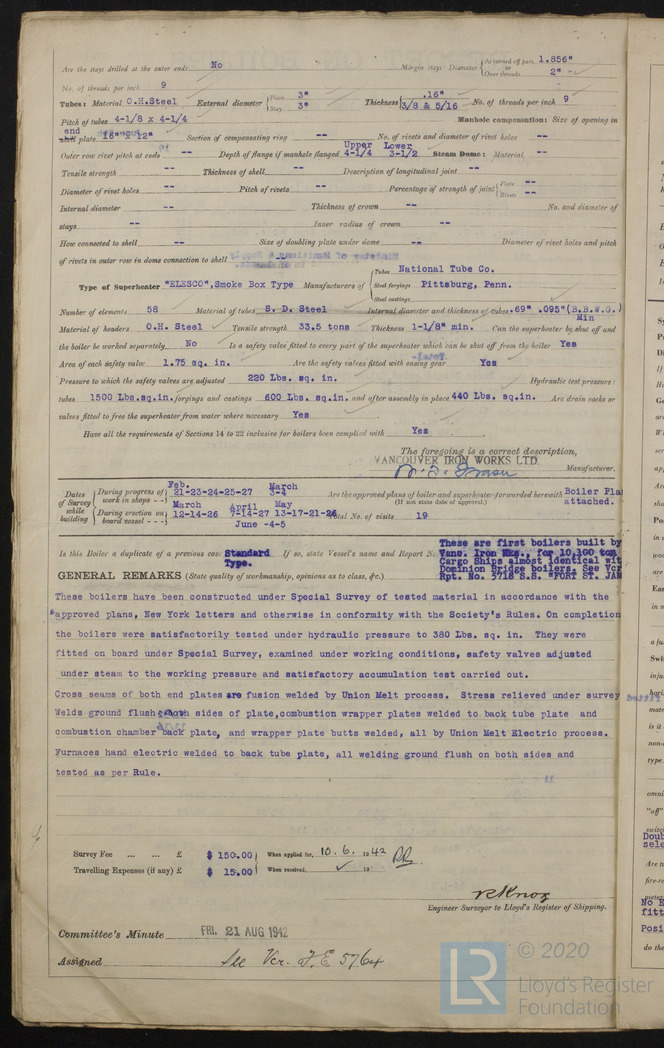 Are the stays drilled at the outer ends No Margin stays: Diameter { At turned off part 1.856" or Over threads 2"
No. of threads per inch 9
Tubes: Material O.H.Steel External diameter { Plain 3" Stay 3" Thickness { .16" 3/8 & 5/16 No. of threads per inch 9
Pitch of tubes 4-1/8 x 4-1/4 Manhole compensation: Size of opening in
end plate 16" x 12" Section of compensating ring -- No. of rivets and diameter of rivet holes --
Outer row rivet pitch at ends -- Depth of flange if manhole flanged Upper 4-1/4 Lower 3-1/2 Steam Dome: Material --
Tensile strength -- Thickness of shell -- Description of longitudinal joint --
Diameter of rivet holes -- Pitch of rivets -- Percentage of strength of joint { Plate -- Rivets --
Internal diameter -- Thickness of crown -- No. and diameter of
stays -- Inner radius of crown --
How connected to shell -- Size of doubling plate under dome -- Diameter of rivet holes and pitch
of rivets in outer row in dome connection to shell --
Type of Superheater "ELESCO",Smoke Box Type Manufacturers of { Tubes National Tube Co. Steel forgings Pittsburg, Penn. Steel castings
Number of elements 58 Material of tubes S. D. Steel Internal diameter and thickness of tubes .69" .095"(B.B.W.G.) Min
Material of headers O.H. Steel Tensile strength 33.5 tons Thickness 1-1/8" min. Can the superheater be shut off and
the boiler be worked separately No Is a safety valve fitted to every part of the superheater which can be shut off from the boiler Yes
Area of each safety valve 1.75 sq. in. Are the safety valves fitted with easing gear Yes
Pressure to which the safety valves are adjusted 220 Lbs. sq. in. Hydraulic test pressure:
tubes 1500 Lbs.sq.in. forgings and castings 600 Lbs. sq.in. and after assembly in place 440 Lbs. sq.in. Are drain cocks or
valves fitted to free the superheater from water where necessary Yes
Have all the requirements of Sections 14 to 22 inclusive for boilers been complied with Yes
The foregoing is a correct description,
VANCOUVER IRON WORKS LTD. Manufacturer.
Dates of Survey while building { During progress of work in shops - - } Feb. 21-23-24-25-27 March 3-4 Are the approved plans of boiler and superheater forwarded herewith Boiler Pla attached.
(If not state date of approval.)
{ During erection on board vessel - - - } March 12-14-26 April 7-14-27 May 13-17-21-26 June -4-5 Total No. of visits 19
Is this Boiler a duplicate of a previous case Standard Type. If so, state Vessel's name and Report N. These are first boilers built by
Vanc. Iron Wks., for 10,100 ton
Cargo Ships almost identical wit
Dominion Bridge boilers. See Vcr
Rpt. No. 5718 S.S. "FORT ST. JAM
GENERAL REMARKS (State quality of workmanship, opinions as to class, &c.)
These boilers have been constructed under Special Survey of tested material in accordance with the
approved plans, New York letters and otherwise in conformity with the Society's Rules. On completion
the boilers were satisfactorily tested under hydraulic pressure to 380 Lbs. sq. in. They were
fitted on board under Special Survey, examined under working conditions, safety valves adjusted
under steam to the working pressure and satisfactory accumulation test carried out.
Cross seams of both end plates are fusion welded by Union Melt process. Stress relieved under survey
Welds ground flush both sides of plate,combustion wrapper plates welded to back tube plate and
combustion chamber back plate, and wrapper plate butts welded, all by Union Melt Electric process.
Furnaces hand electric welded to back tube plate, all welding ground flush on both sides and
tested as per Rule.
Survey Fee ... ... £ $ 150.00 When applied for, 10.6. 1942
Travelling Expenses (if any) £ $ 15.00 When received, 19
R Knox
Engineer Surveyor to Lloyd's Register of Shipping.
Committee's Minute FRI. 21 AUG 1942
Assigned See Vcr. F.E 5764
© 2020
LR Lloyd's Register
Foundation